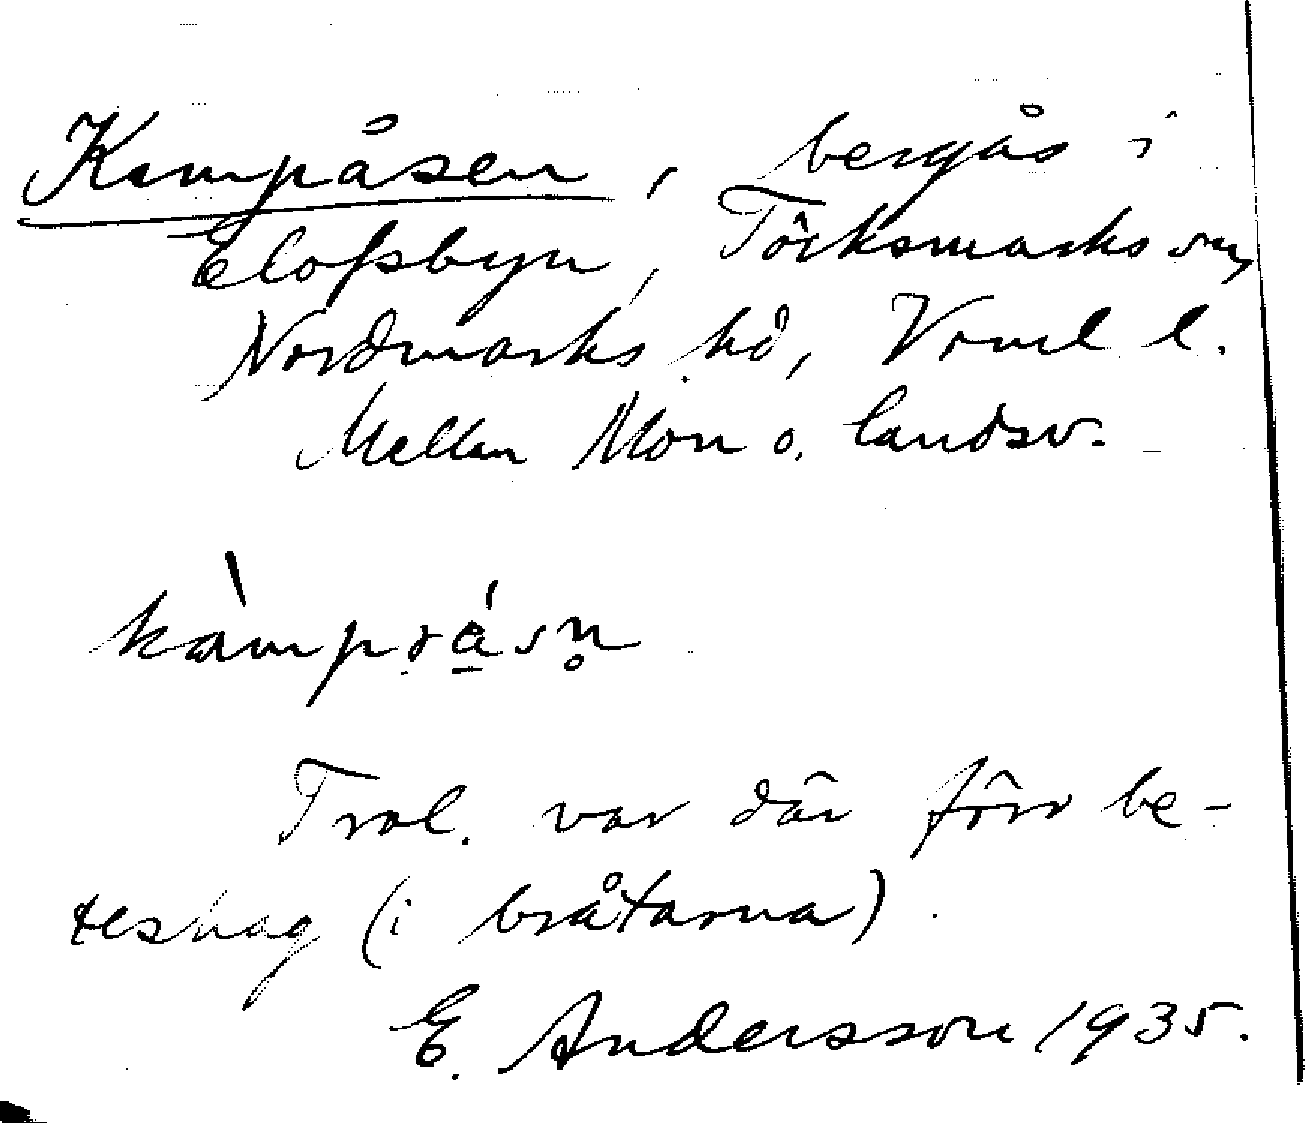 Kampåsen, bergås i
Elofsbyn, Töcksmarks sn,
Nordmarks hd, Vrml l.
Mellan Mon o. landsv.
kàmpråsn̥
Trol. var där förr be-
teshag (i bråtarna).
E. Andersson 1935.